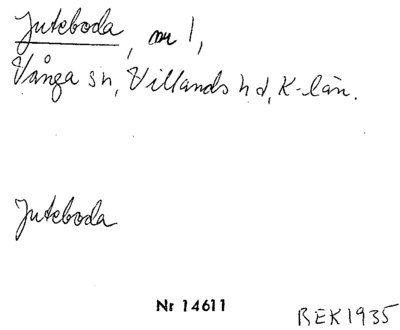 Juteboda, nr 1,
Vånga sn, Villands hd, K-län.
Juteboda
Nr 14611
BEK 1935